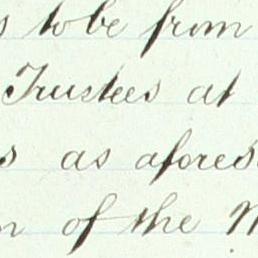 s to be from
Trustees at
s as afores
n of the